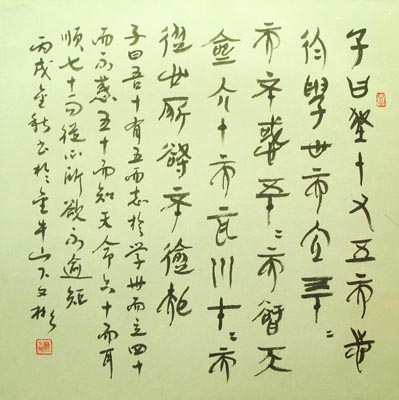 子曰吾十又五而志
於學卅而立四十
而不惑五十而智天
命六十而耳川七十而
從心所欲不逾矩
子曰吾十有五而志於学卅而立四十
而不惑五十而知天命六十而耳
順七十而從心所欲不逾矩
丙戌金秋书於金牛山下文彬